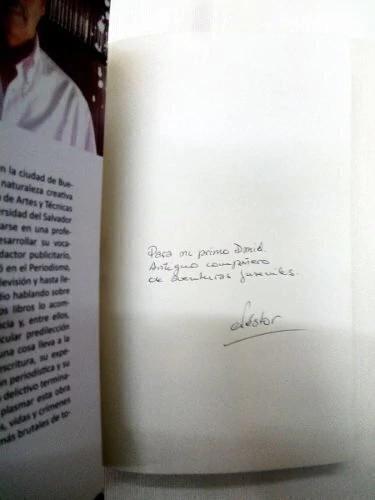 en la ciudad de Bue-
naturaleza creativa
de Artes y Técnicas
ersidad del Salvador
arse en una profe-
esarrollar su voca-
dactor publicitario,
ó en el Periodismo,
levisión y hasta lle-
dio hablando sobre
os libros lo acom-
ncia y, entre ellos,
cular predilección
una cosa lleva a la
scritura, su expe-
n periodística y su
o delictivo termina-
plasmar esta obra
s, vidas y crímenes
más brutales de to-
Para mi primo David.
Antiguo compañero
de aventuras juveniles.
Néstor